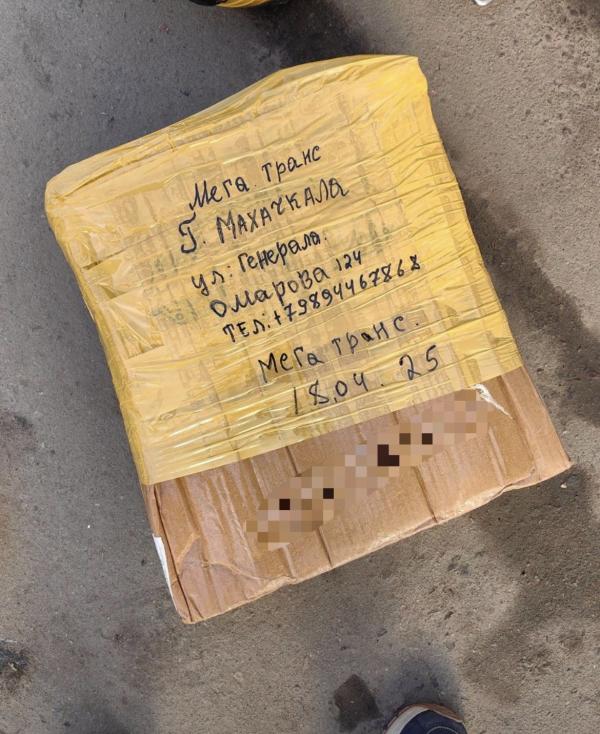 Мега транс
Г. МАХАЧКАЛА
ул: Генерала.
Омарова 124
ТЕЛ: +79894467868
Мега транс.
18.04.25